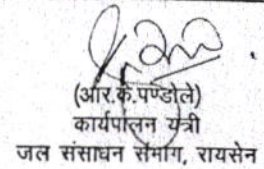 (आर.के.पण्डोले)
कार्यपालन यंत्री
जल संसाधन संभाग, रायसेन